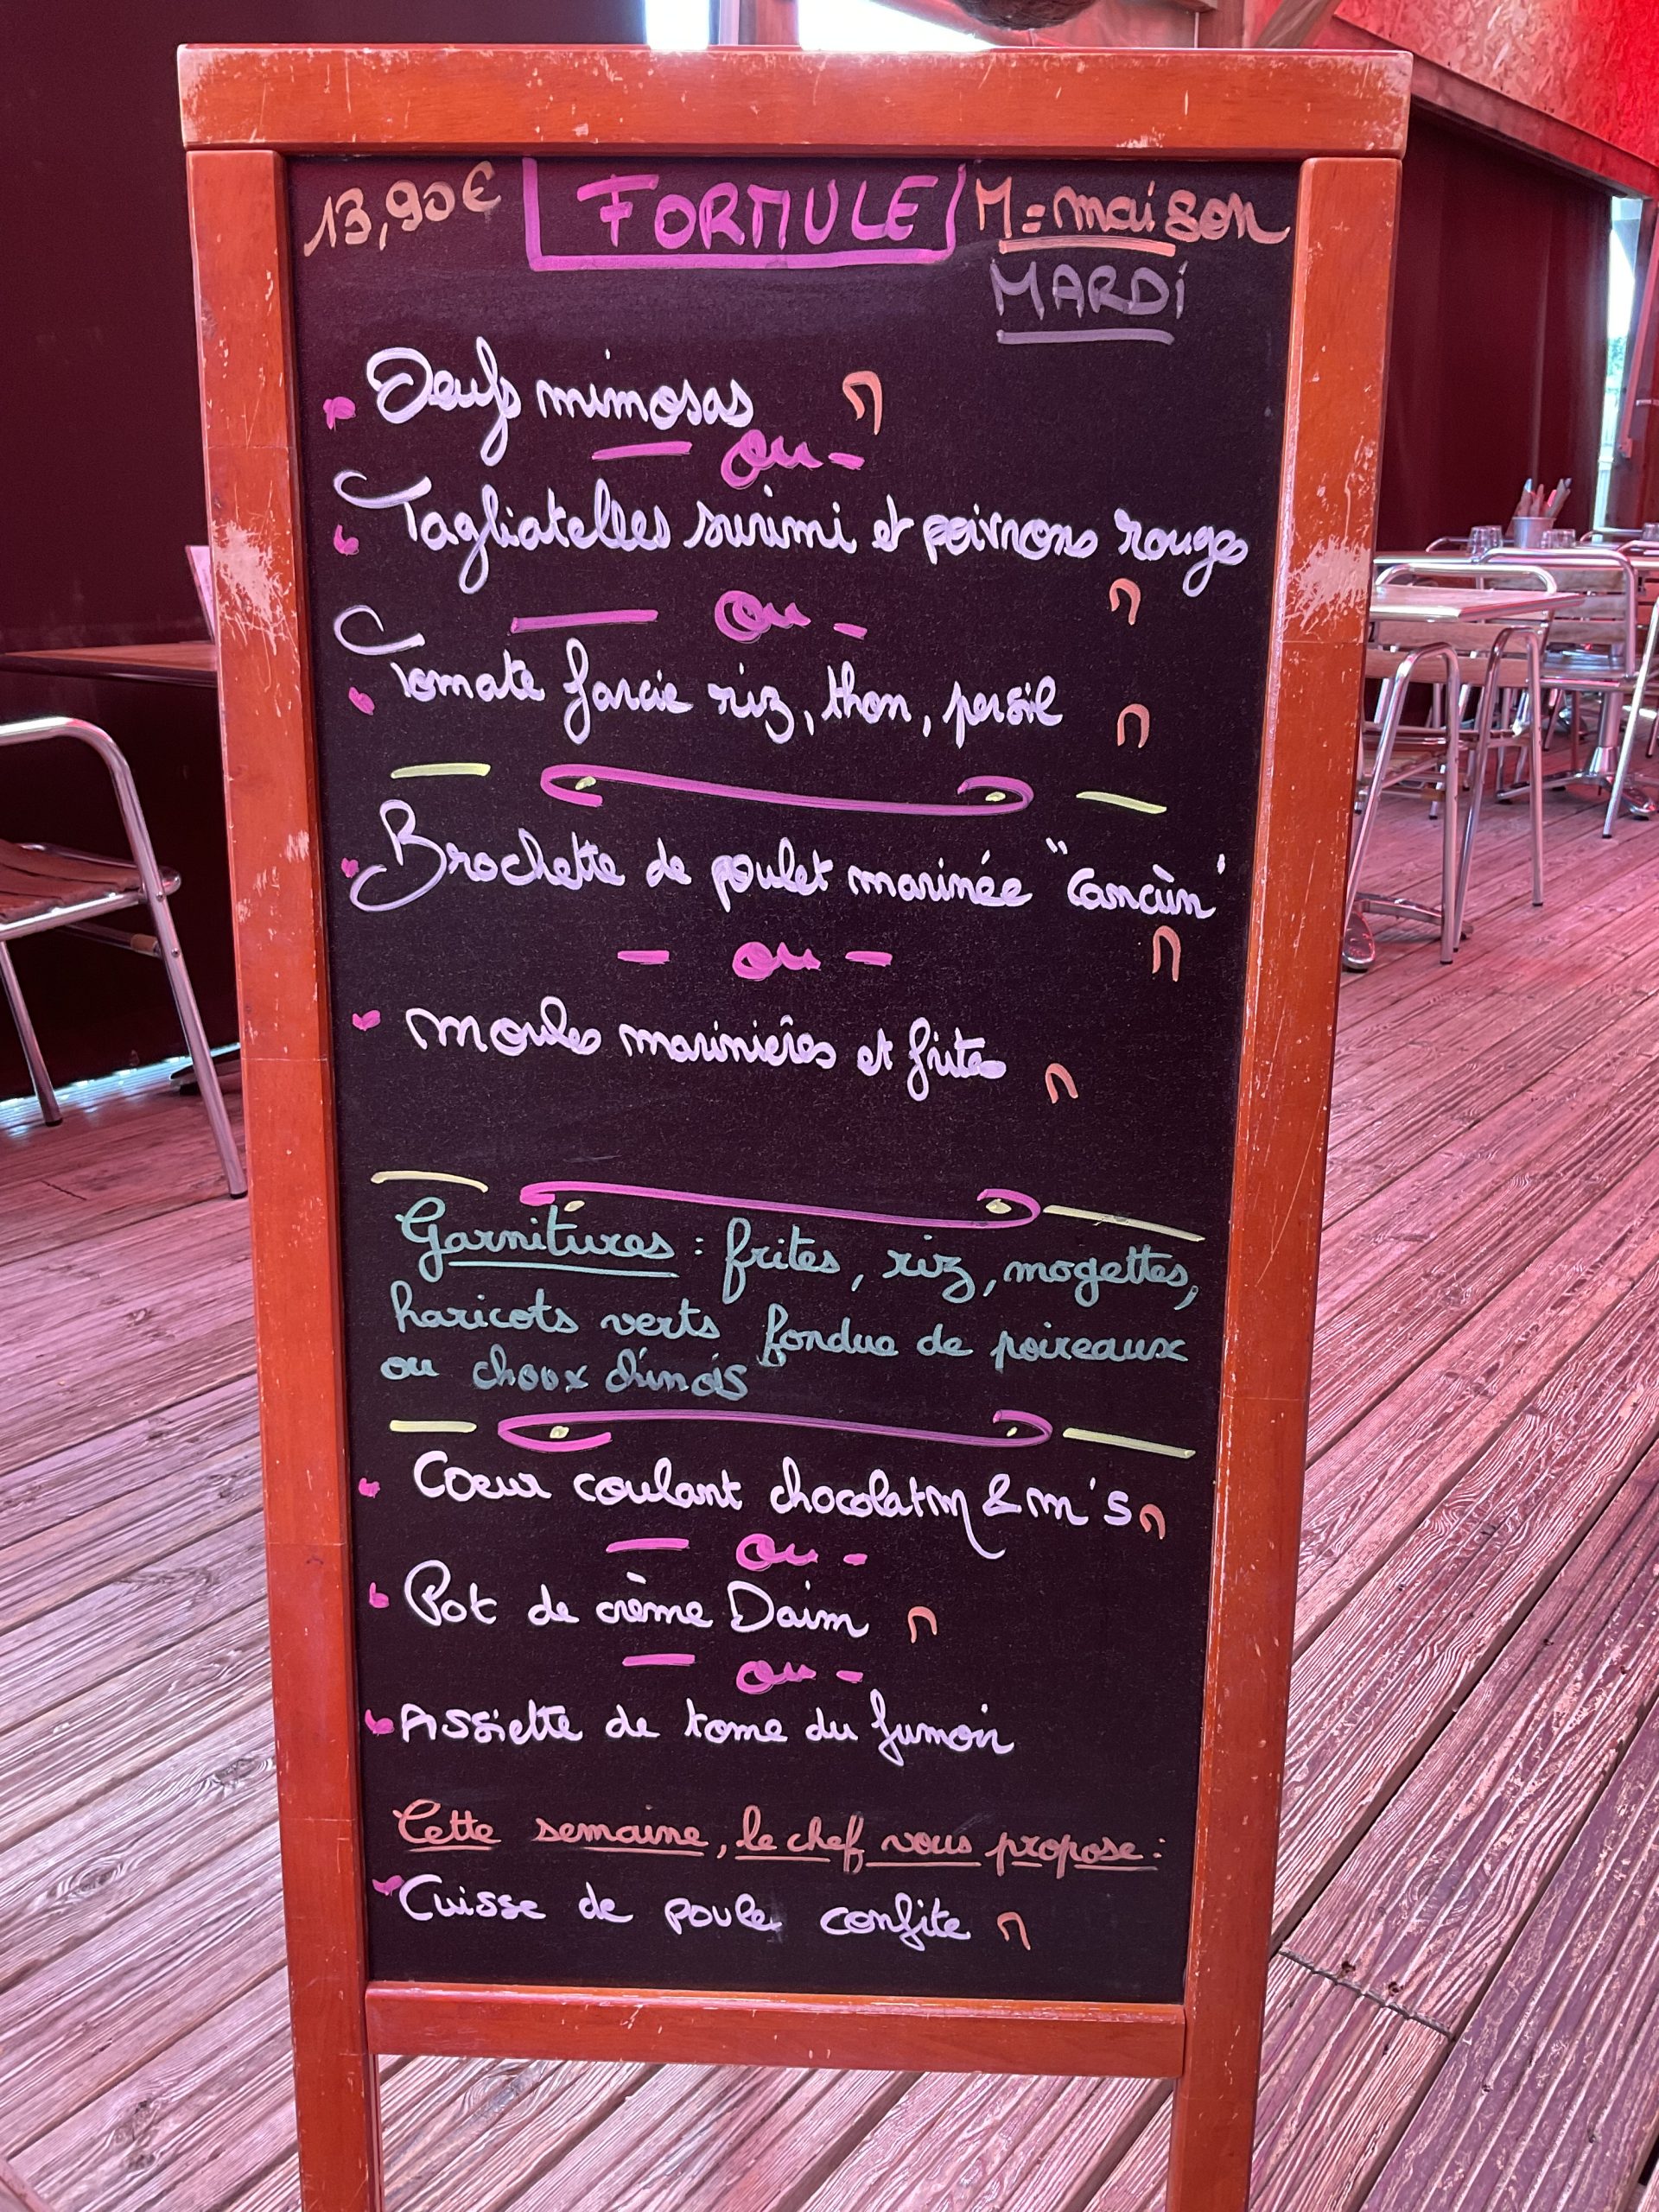 13,90€ FORMULE M = maison
MARDi
Oeufs mimosas M
ou
Tagliatelles surimi et poivrons rouges
M
ou
Tomate farcie riz, thon, persil M
Brochette de poulet marinée "Cancùn"
ou M
moules marinières et frites M
Garnitures : frites, riz, mogettes,
haricots verts fondue de poireaux
ou choux chinois
Coeur coulant chocolat m & m's M
ou
Pot de crème Daim M
ou
Assiette de tome du fumoir
Cette semaine, le chef vous propose :
Cuisse de poule confite M